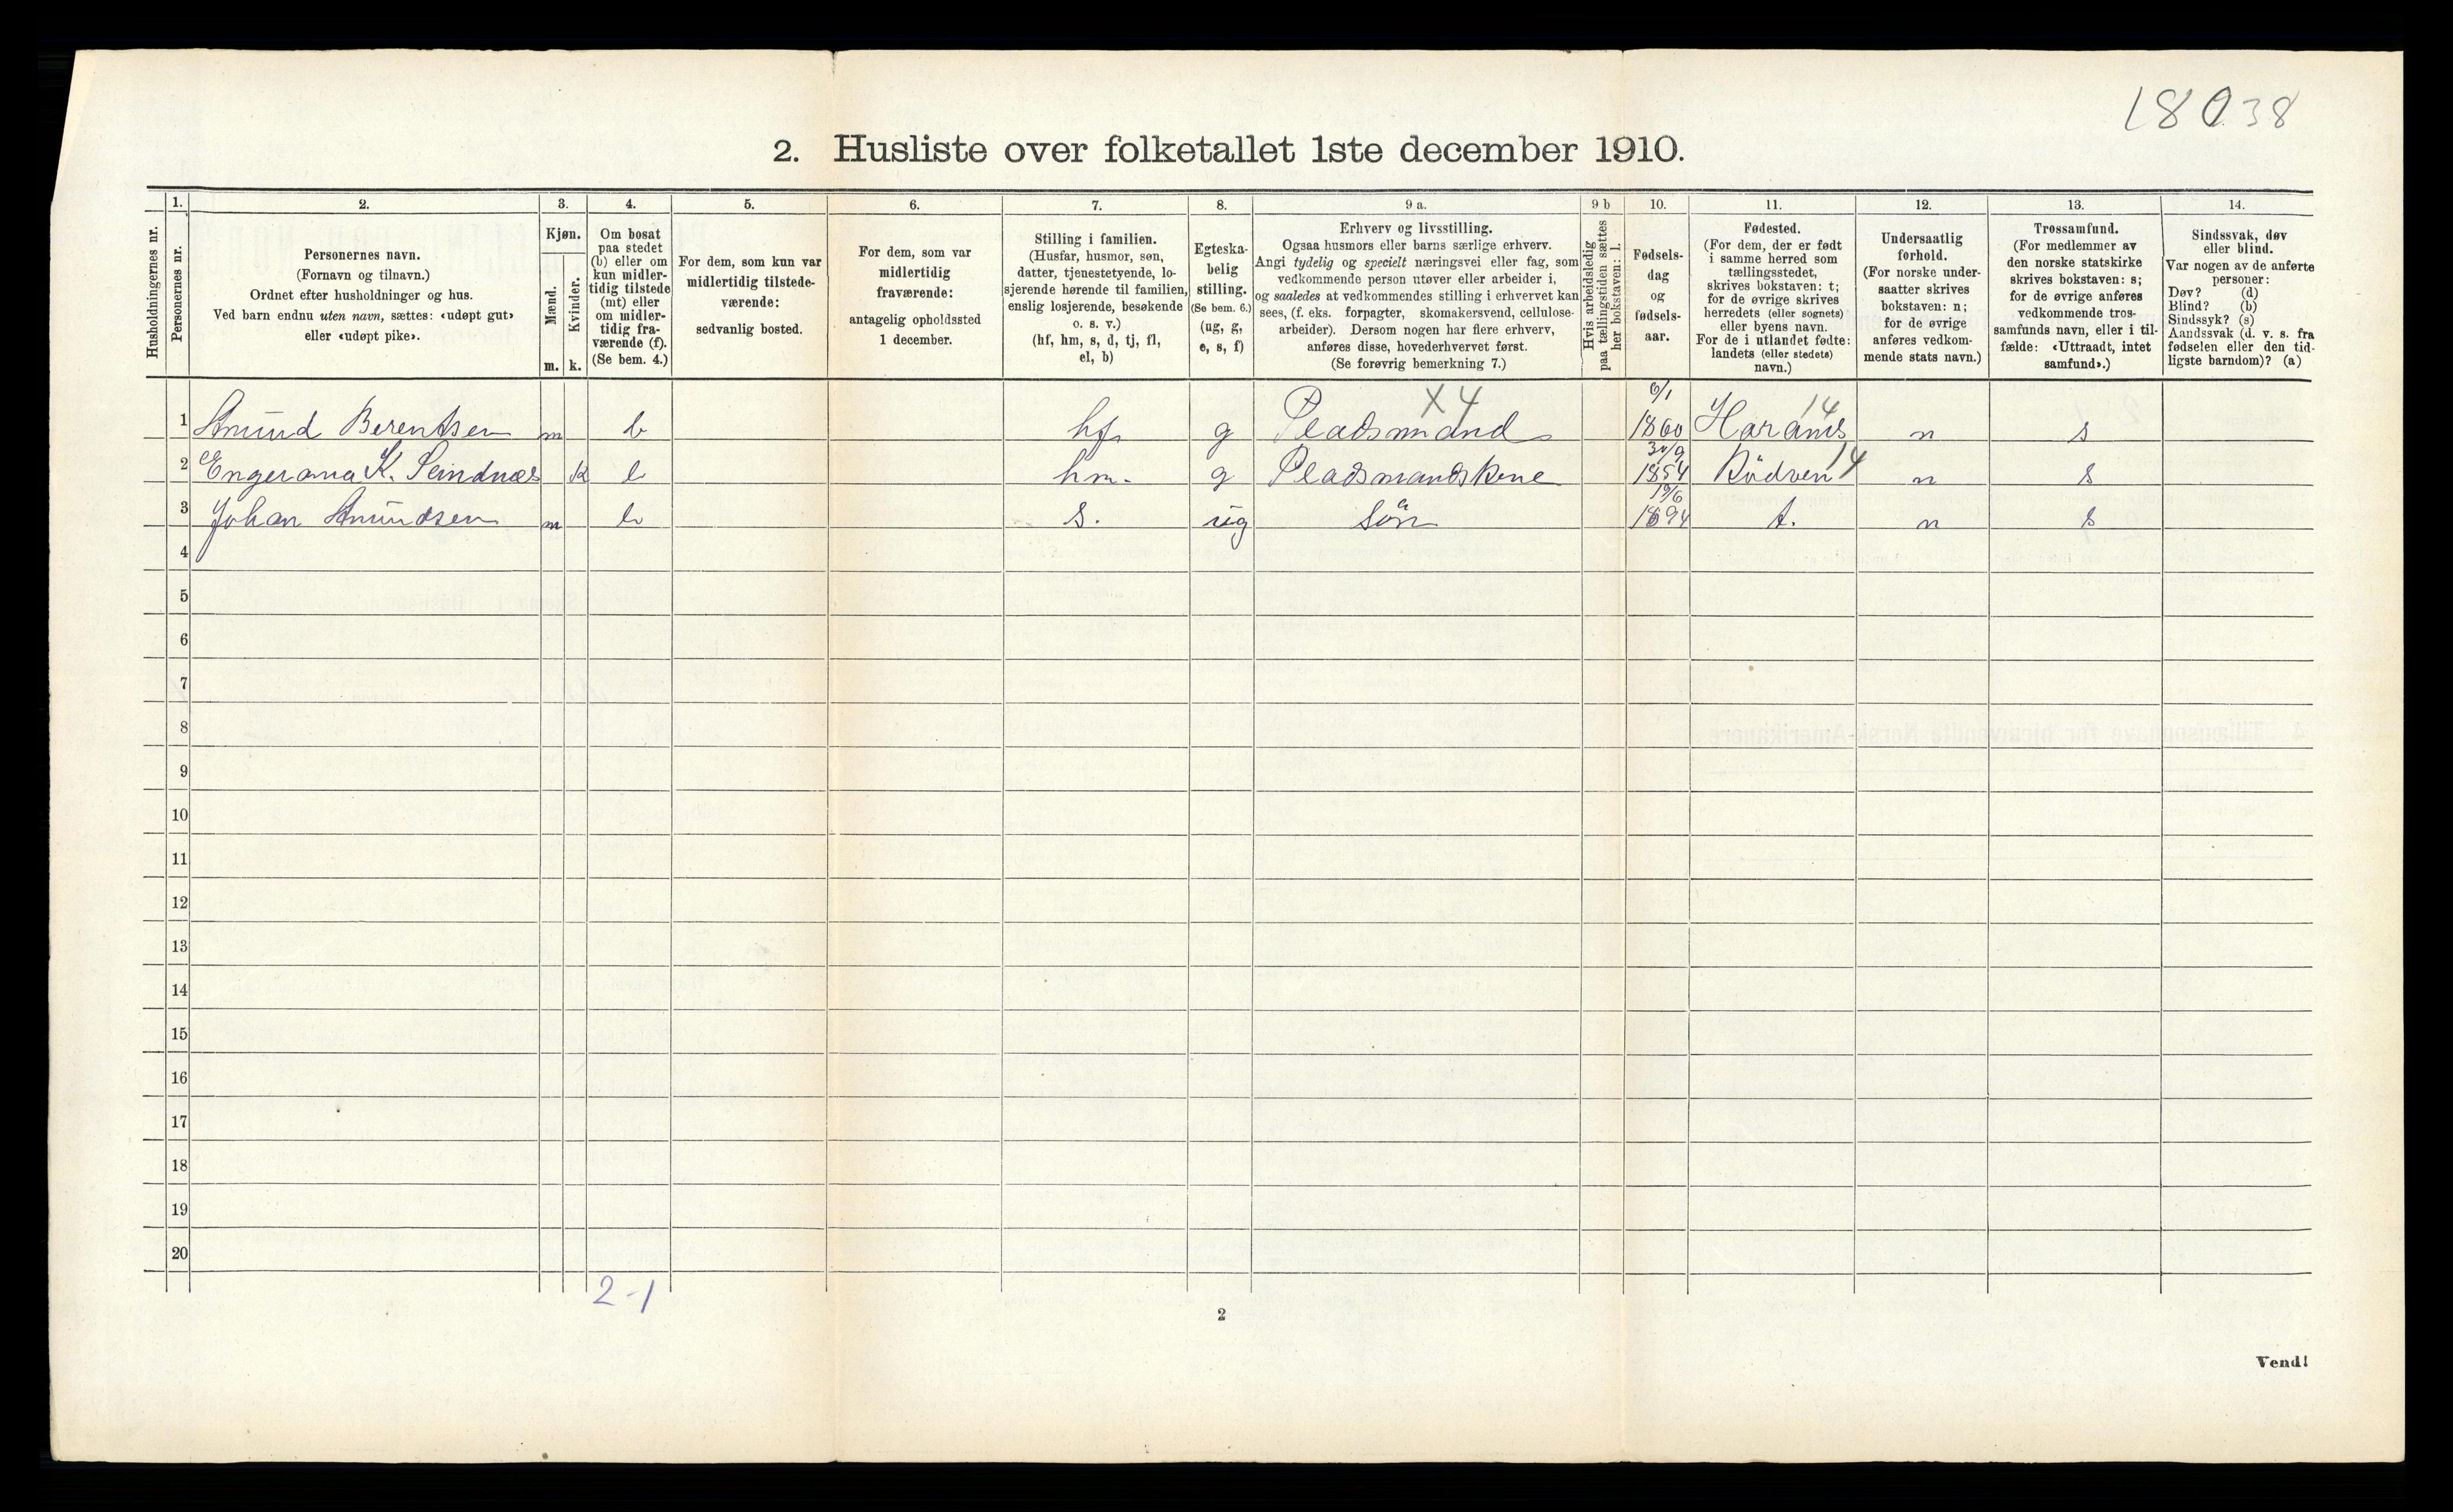 18038
2. Husliste over folketallet 1ste december 1910.
Husholdningernes nr.
1. Personernes nr.
2. Personernes navn. (Fornavn og tilnavn.) Ordnet efter husholdninger og hus. Ved barn endnu uten navn, sættes: «udøpt gut» eller «udøpt pike».
3. Kjøn. Mænd. m. Kvinder. k.
4. Om bosat paa stedet (b) eller om kun midlertidig tilstede (mt) eller om midlertidig fraværende (f). (Se bem. 4.)
5. For dem, som kun var midlertidig tilstedeværende: sedvanlig bosted.
6. For dem, som var midlertidig fraværende: antagelig opholdssted 1 december.
7. Stilling i familien. (Husfar, husmor, søn, datter, tjenestetyende, losjerende hørende til familien, enslig losjerende, besøkende o. s. v.) (hf, hm, s, d, tj, fl, el, b)
8. Egteskabelig stilling. (Se bem. 6.) (ug, g, e, s, f)
9 a. Erhverv og livsstilling. Ogsaa husmors eller barns særlige erhverv. Angi tydelig og specielt næringsvei eller fag, som vedkommende person utøver eller arbeider i, og saaledes at vedkommendes stilling i erhvervet kan sees, (f. eks. forpagter, skomakersvend, cellulosearbeider). Dersom nogen har flere erhverv, anføres disse, hovederhvervet først. (Se forøvrig bemerkning 7.)
9 b Hvis arbeidsledig paa tællingstiden sættes her bokstaven: l.
10. Fødselsdag og fødselsaar.
11. Fødested. (For dem, der er født i samme herred som tællingsstedet, skrives bokstaven: t; for de øvrige skrives herredets (eller sognets) eller byens navn. For de i utlandet fødte: landets (eller stedets) navn.)
12. Undersaatlig forhold. (For norske undersaatter skrives bokstaven: n; for de øvrige anføres vedkommende stats navn.)
13. Trossamfund. (For medlemmer av den norske statskirke skrives bokstaven: s; for de øvrige anføres vedkommende trossamfunds navn, eller i tilfælde: «Uttraadt, intet samfund».)
14. Sindssvak, døv eller blind. Var nogen av de anførte personer: Døv? (d) Blind? (b) Sindssyk? (s) Aandssvak (d. v. s. fra fødselen eller den tidligste barndom)? (a)
1 Amund Berentsen m b hf g Pladsmand X4 6/1 1860 Harams 14 n s
2 K. k b hm. g Pladsmandskone 1854 Rödven 14 n s
3 Johan Amundsen m b s. ug sön 19/6 1894 t. n s
4
5
6
7
8
9
10
11
12
13
14
15
16
17
18
19
20
2-1
2
Vend!